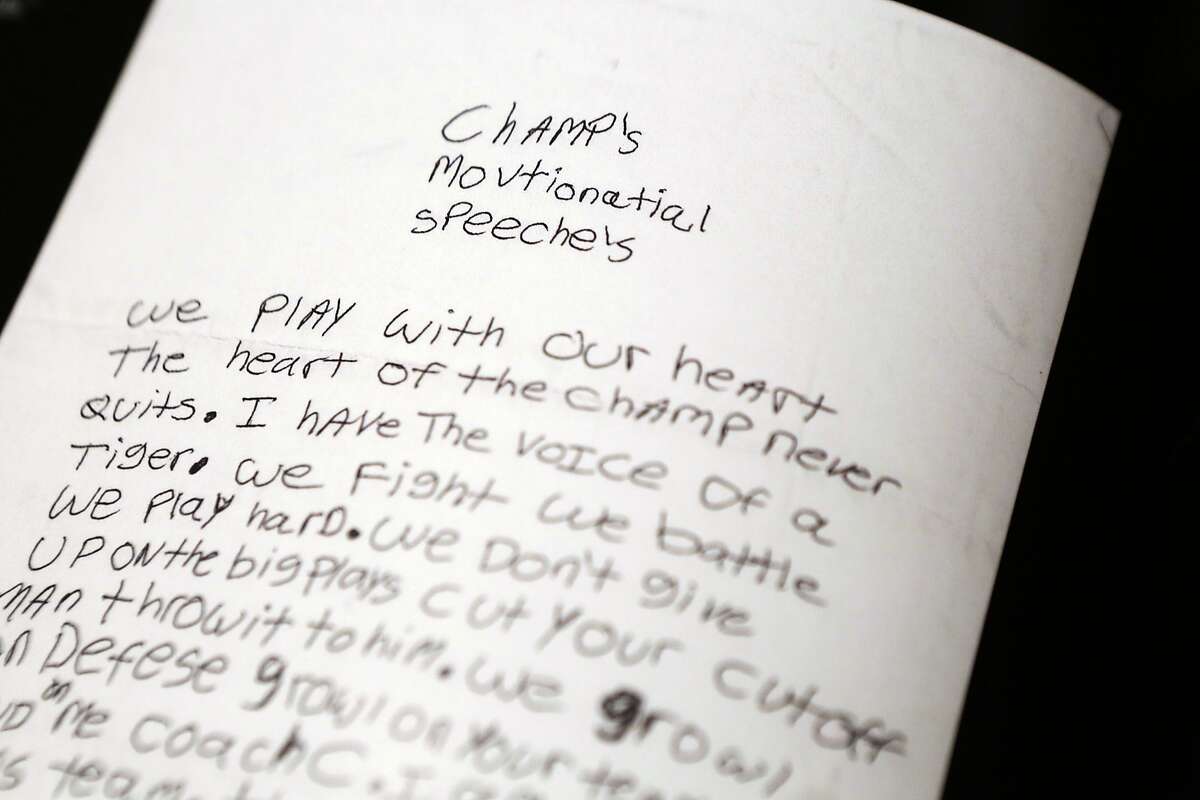 ChAMP's
Movtionatial
speeche's
we PLAY with our heart
The heart of the champ never
quits. I have The voice of a
Tiger. we Fight we battle
we play hard. we Don't give
UP ON the big plays cut your cutoff
MAn throw it to him. we growl
on Defese growl on your
on Me coach C. I
team.